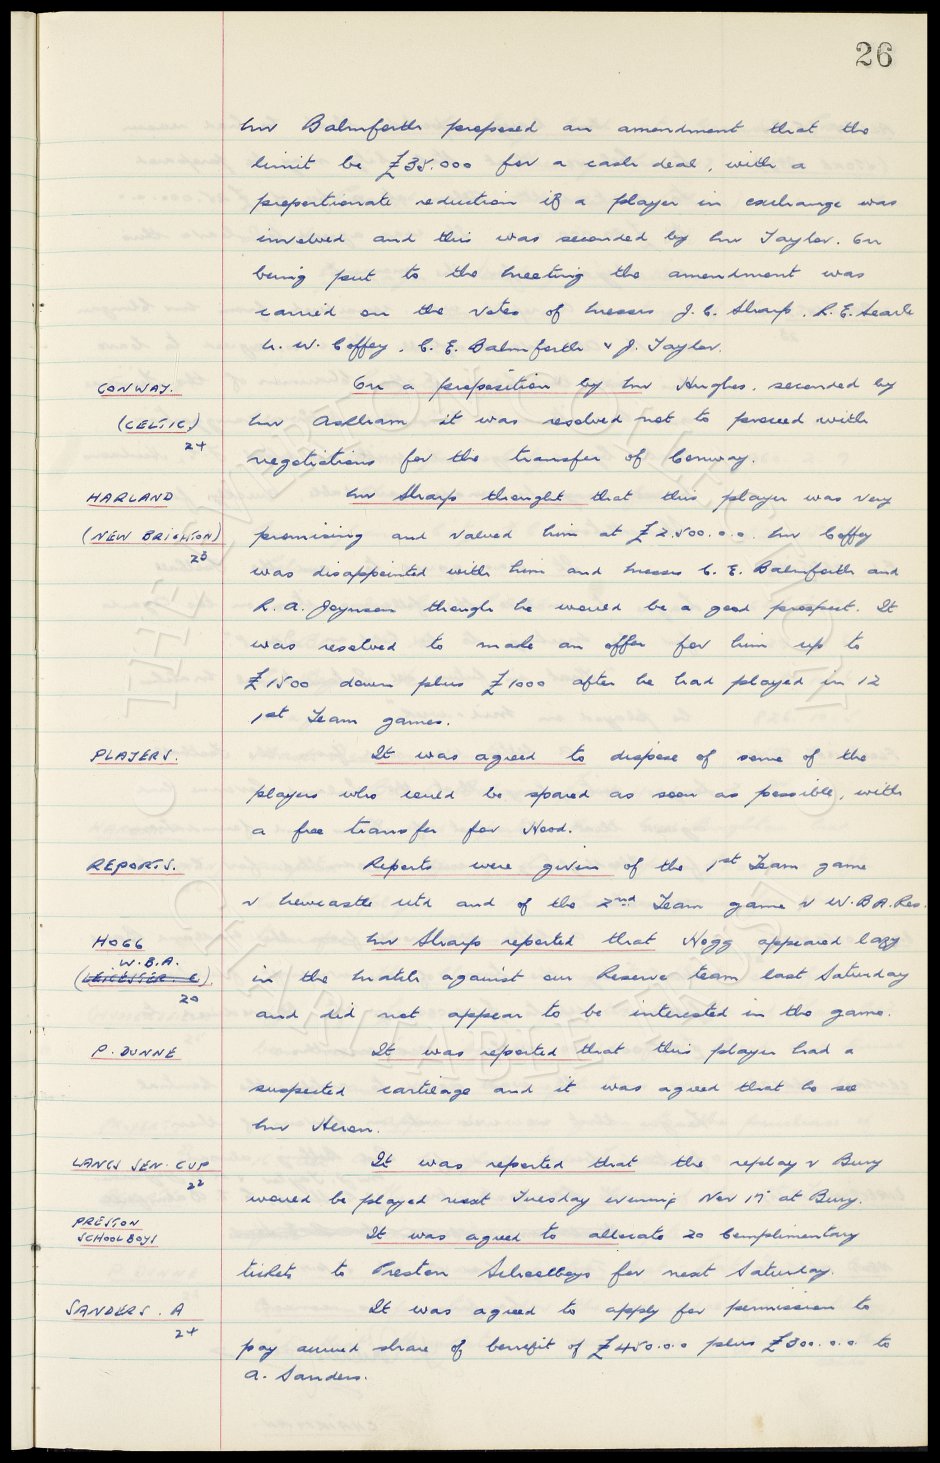 26
Mr Balmforth proposed an amendment that the
limit be £35.000 for a cash deal, with a
proportionate reduction if a player in exchange was
involved and this was seconded by Mr Taylor. On
being put to the meeting the amendment was
carried on the votes of Messrs J. C. Sharp, R. E. Searle
N. W. Coffey, C. E. Balmforth & J. Taylor.
CONWAY. On a proposition by Mr Hughes, seconded by
(CELTIC) Mr Askham it was resolved not to proceed with
24 negotiations for the transfer of Conway.
HARLAND Mr Sharp thought that this player was very
(NEW BRIGHTON) promising and valued him at £2.500.0.0. Mr Coffey
25 was disappointed with him and Messrs C. E. Balmforth and
R. A. Joynson though he would be a good prospect. It
was resolved to make an offer for him up to
£1500 down plus £1000 after he had played in 12
1st Team games.
PLAYERS. It was agreed to dispose of some of the
players who could be spared as soon as possible, with
a free transfer for Hood.
REPORTS. Reports were given of the 1st Team game
v Newcastle Utd and of the 2nd Team game v W.B.A. Res.
HOGG Mr Sharp reported that Hogg appeared lazy
W.B.A.
(LEICESTER. C) in the match against our Reserve team last Saturday
20 and did not appear to be interested in the game.
P. DUNNE It was reported that this player had a
suspected cartilage and it was agreed that he see
Mr Heron.
LANCS SEN. CUP It was reported that the replay v Bury
22 would be played next Tuesday evening Nov 17 at Bury.
PRESTON
SCHOOLBOYS It was agreed to allocate 20 Complimentary
tickets to Preston Schoolboys for next Saturday.
SANDERS. A It was agreed to apply for permission to
24 pay accrued share of benefit of £450.0.0 plus £300.0.0 to
A. Sanders.